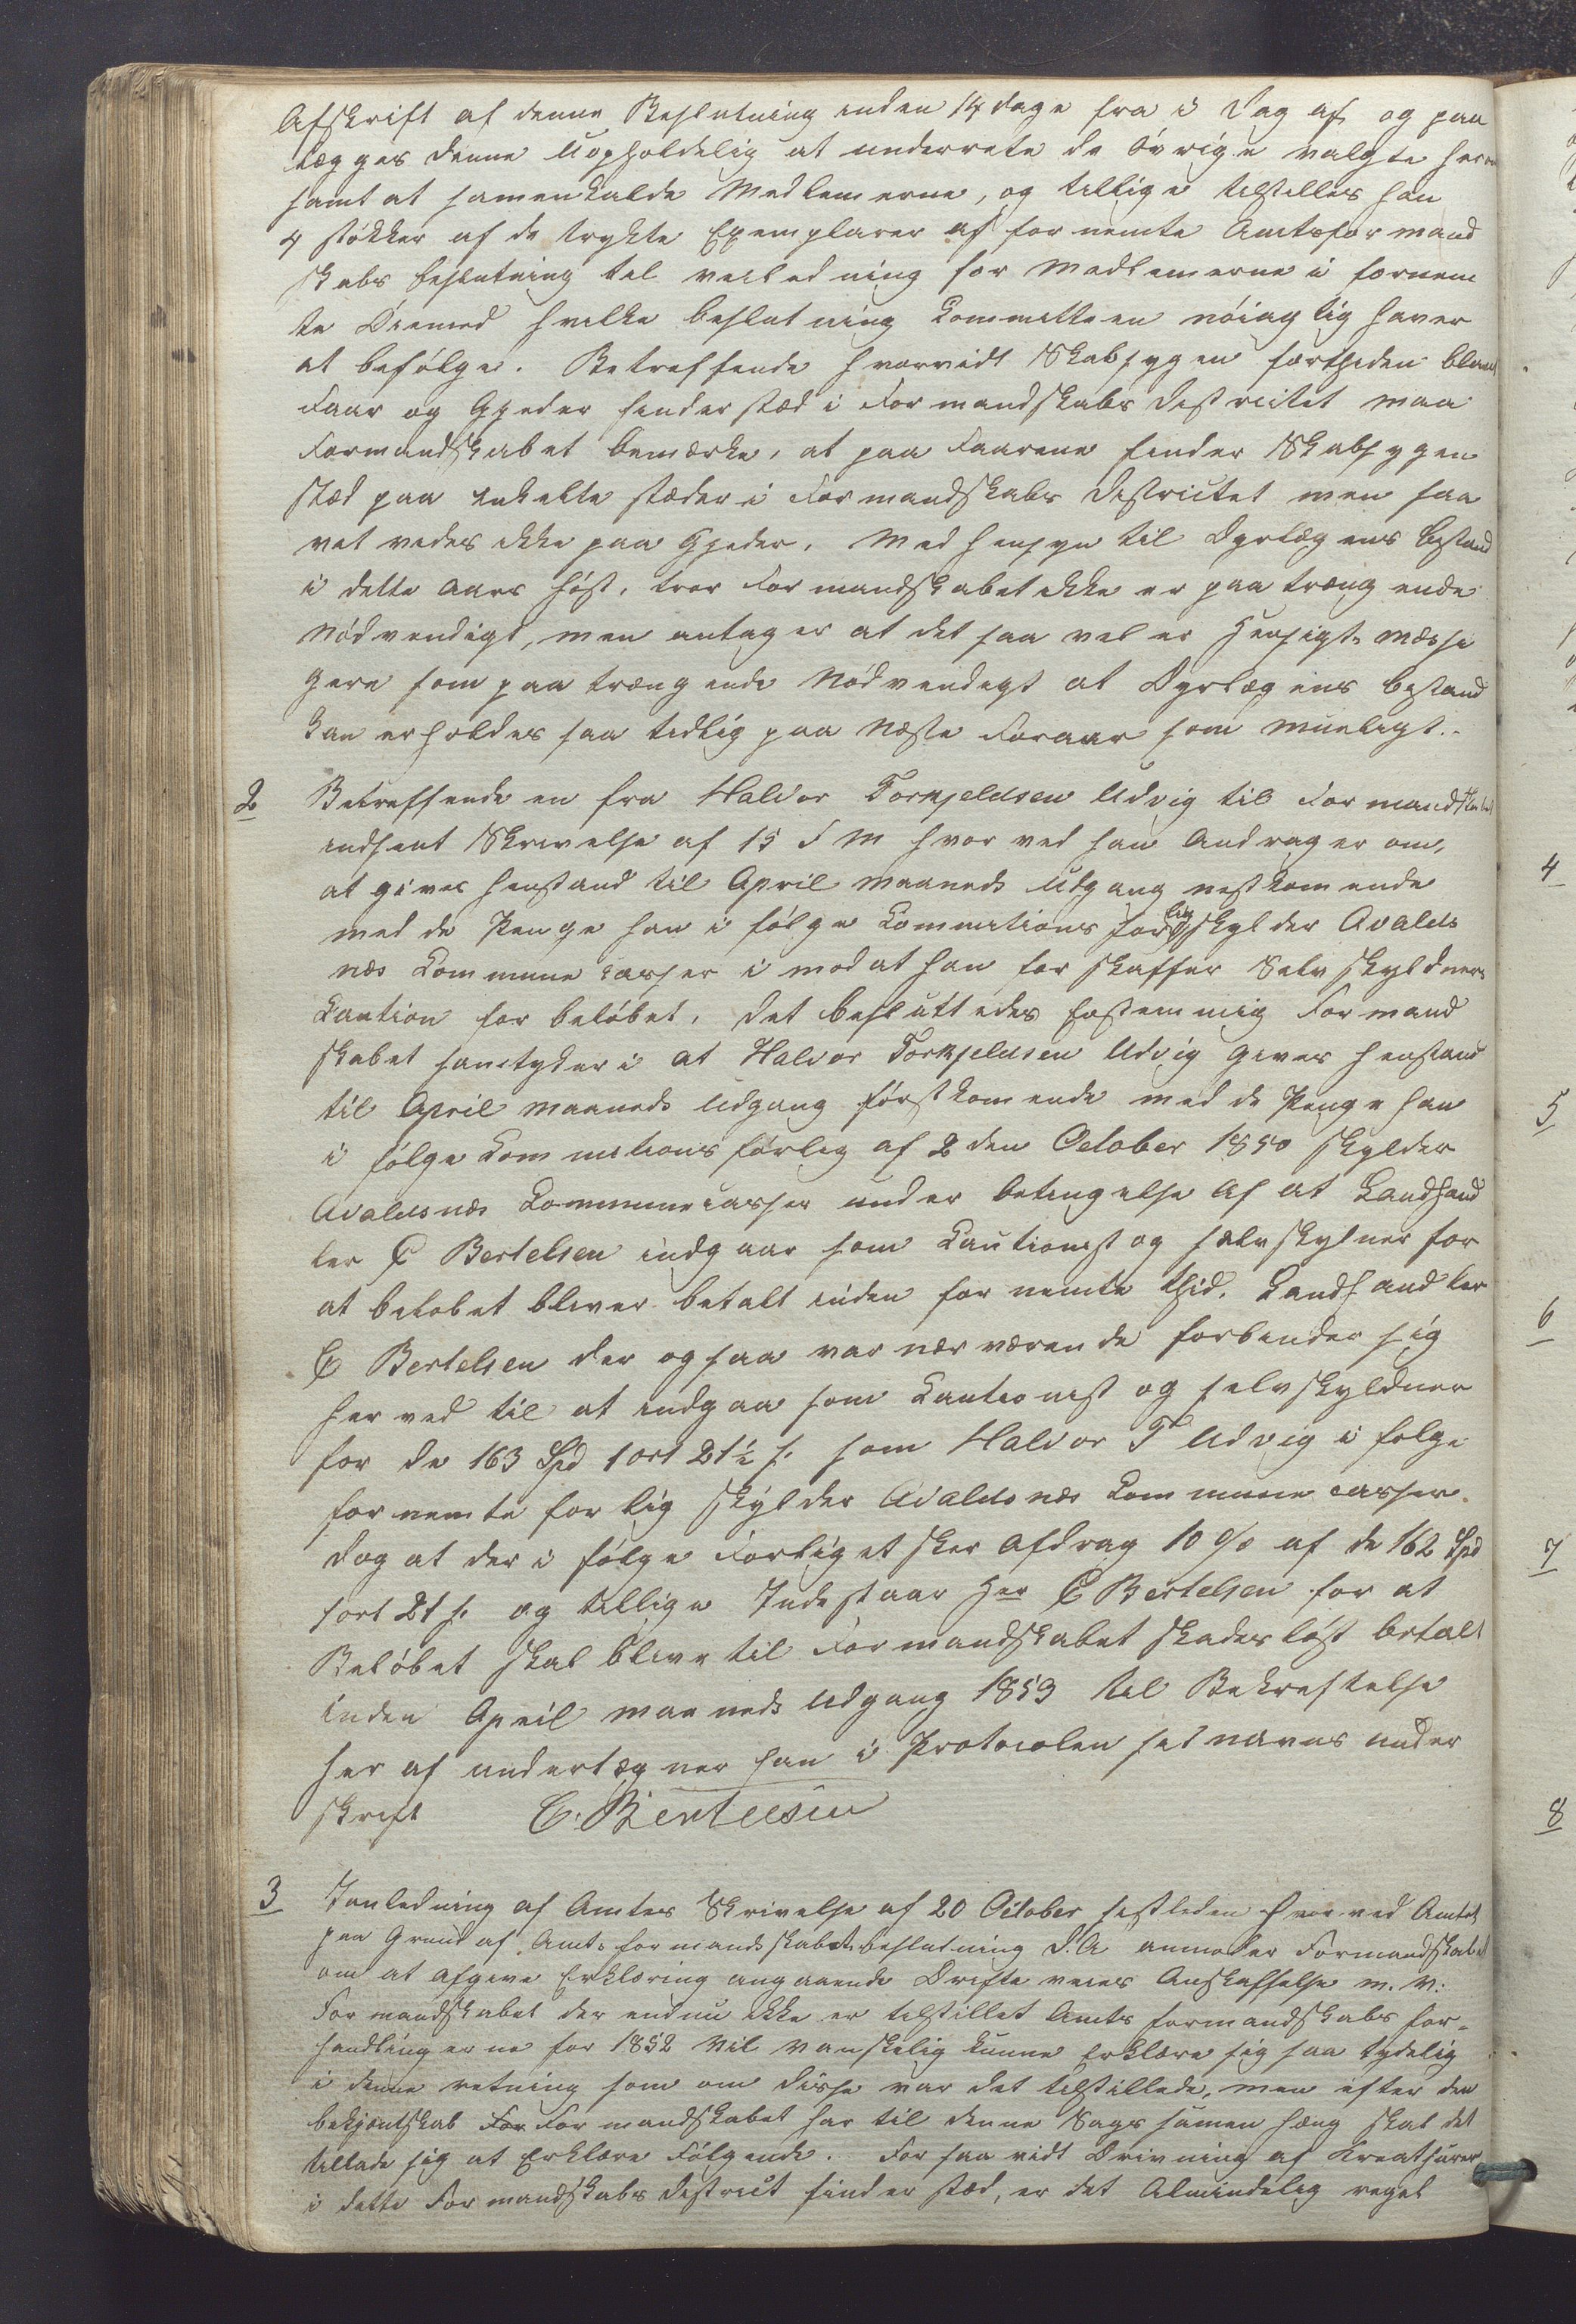 Afskrift af denne Beslutning inden 14 dage fra i Dag af, og paa
lægges denne Uopholdelig at underrete de Övrige valgte herom
samt at samenkalde Medlemerne, og tillige tilstilles han
4 støkker af de trykte Exemplarer af for nemte Amtsformand
skabs beslutning til veiledning for Medlemerne i fornem
te Öiemed hvilke beslutning Committeen nöiagtig haver
at befølge. Betreffende hvorvidt Skabsygen fortheden bland
Faar og Gjeder finder stæd i Formandskabs Destrictet maa
Formandskabet bemærke, at paa Faarene finder Skabsygen
stæd paa enkelte stæder i Formandskabs Destrictet men saa
vet vedes ikke paa Gjeder. Med hensyn til Dyrlægens bestand
i dette Aars höst, tror Formandskabet ikke er paa trængende
Nödvendigt, men antager at det saa vel er Hensigts mæssi
gere som paa trængende Nödvendigt at Dyrlægens bestand
kan erholdes saa tidlig paa Næste Foraar som mueligt.
2 Betreffende en fra Halvor Torkjeldsen Udvig til Formandskabet
indsent Skrivelse af 15 d M hvor ved han Andrager om,
at gives henstand til April maaneds Udgang nestkomende
med de Penge han i fölge Commitions forlig skylder Avalds
næs Commune casser i mod at han for skaffer Selvskyldner
Caution for belöbet. Det besluttedes Enstemmig Formand
skabet samtykker i at Halvor Torkjeldsen Udvig Gives henstand
til April maaneds Udgang förstkomende med de Penge han
i fölge Commitions forlig af 2den October 1850 skylder
Avaldsnæs Communecasser under betingelse af at Landhand
ler C Bertelsen indgaar som Cautionist og sælvskylner for
at belobet bliver betalt inden for nemte thid. Landhandler
C Bertelsen der ogsaa var nærværende forbinder sig
her ved til at indgaa som Cautionist og selvskyldner
for de 163 Spd 1 ort 21½ s. som Halvor T Udvig i folge
fornemte forlig skylder Avaldsnæs Commune casser.
dog at der i fölge Forliget sker Afdrag 10 % af de 162 Spd
1 ort 21 s. og tillige Indestaar Her C Bertelsen for at
Belöbet skal blive til Formandskabet skadeslöst betalt
inden April maaneds Udgang 1853 til Bekreftelse
her af undertegner han i Protocolen sit navns under
skrift C. Bertelsen
3 Ianledning af Amtes Skrivelse af 20 October sistleden hvor ved Amtet
paa Grund af Amts formandsskabets beslutning d.A anmoder Formandskabet
om at afgive Erklæring angaaende Drifte veies Anskaffelse m. V:
Formandskabet der endnu ikke er tilstillet Amts formandskabs for-
handlingerne for 1852 vil vanskelig kunne Erklære sig saa tydelig
i denne retning som om disse var det tilstillede, men efter den
bekjentskab For Formandskabet har til denne Sags sammenhæng skal det
tillade sig at Erklære Følgende. For saa vidt Drivning af Kreathurer
i dette Formandskabs destrict finder stæd, er det Almindelig regel
4
5
6
7
8